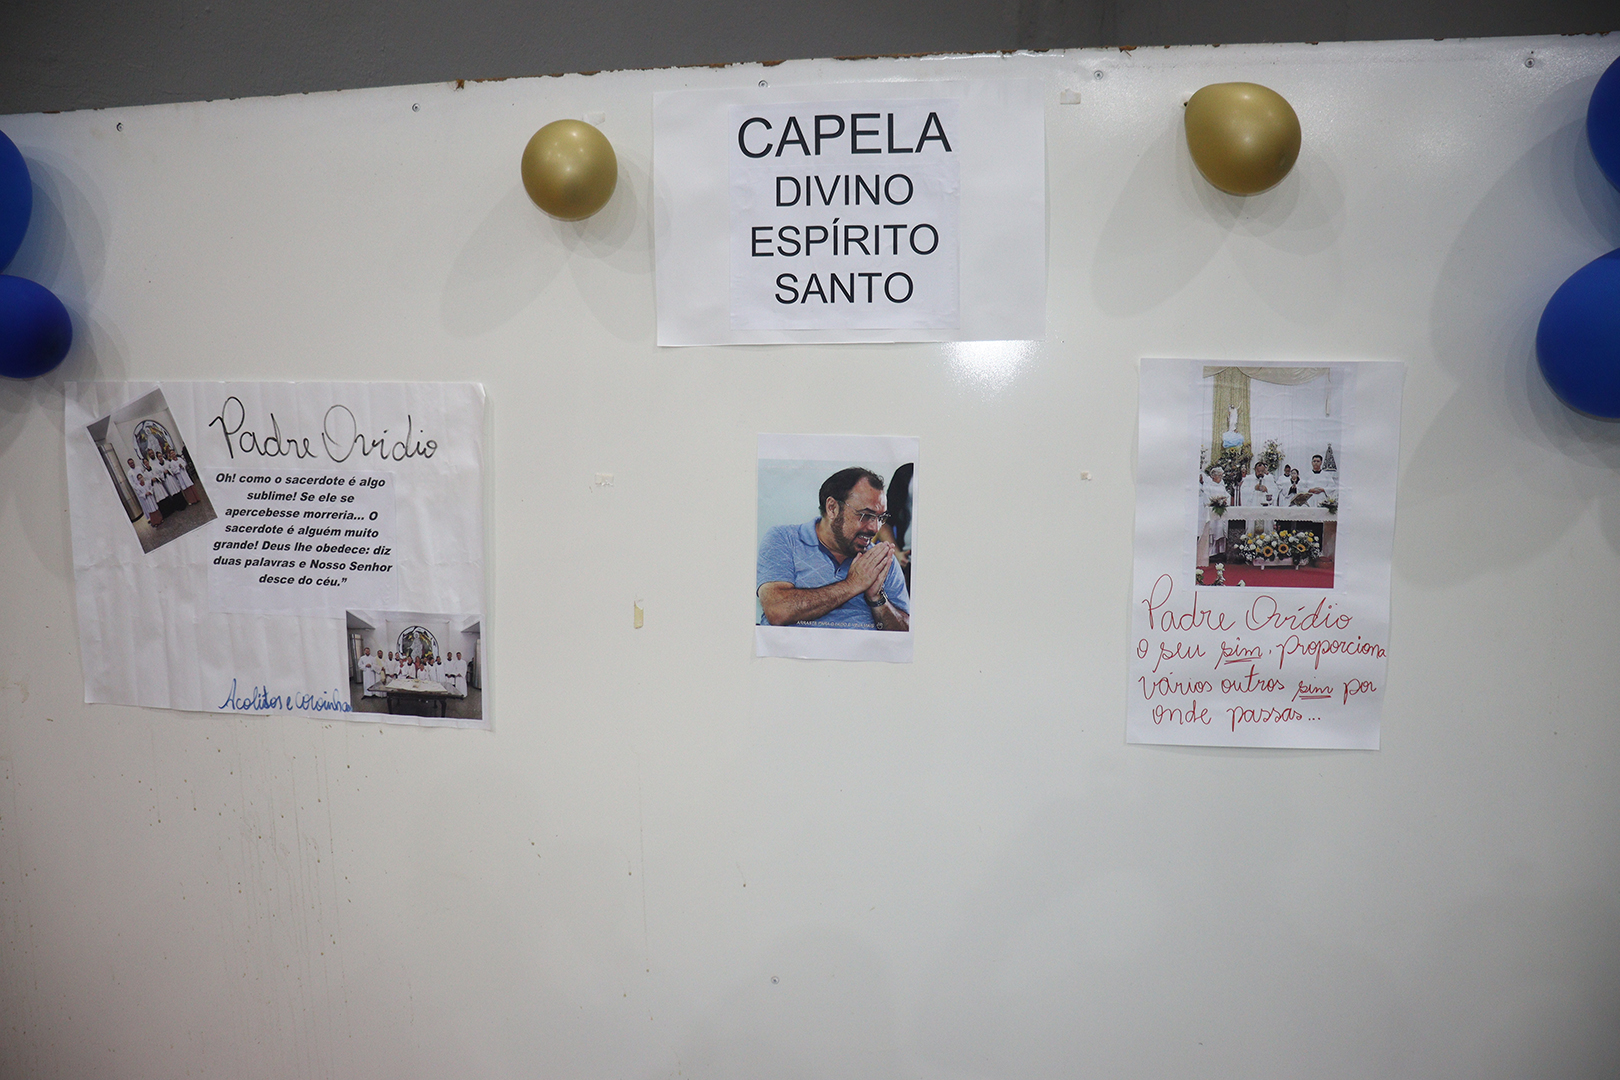 CAPELA
DIVINO
ESPÍRITO
SANTO
Padre Ovídio
Oh! como o sacerdote é algo
sublime! Se ele se
apercebesse morreria... O
sacerdote é alguém muito
grande! Deus lhe obedece: diz
duas palavras e Nosso Senhor
desce do céu.”
Acolitos e coroinhas
Padre Ovídio
O seu sim, proporciona
vários outros sim por
onde passas...